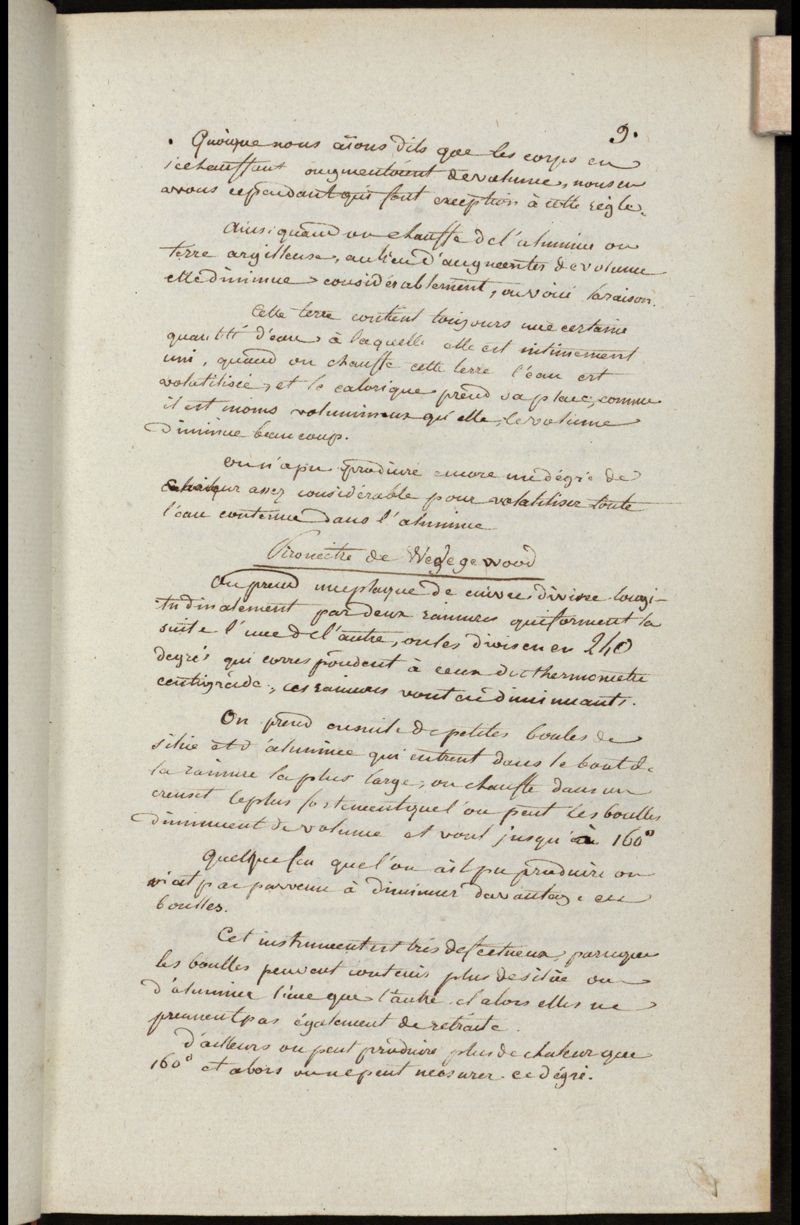 9.
Quoique nous aïons dits que les corps en
s'échauffant augmentoient de volume, nous en
avons cependant qui font exception à cette règle.
Ainsi quand on chauffe de l'alumine ou
terre argilleuse, au lieu d'augmenter de volume
elle diminue considérablement, en voici la raison.
Cette terre contient toujours une certaine
quantité d'eau à laquelle elle est intimement
uni, quand on chauffe cette terre l'eau est
volatilisée, et le calorique prend sa place, comme
il est moins volumineux qu'elle, le volume
diminue beaucoup.
on n'a pu produire encore un dégré de
chaleur assez considérable pour volatiliser toute
l'eau contenue dans l'alumine
Piromètre de Wedgewood
On prend une plaque de cuivre divisée longi-
tudinalement par deux rainures qui forment la
suite l'une de l'autre, on les divise en 240
degrés qui correspondent à ceux du thermometre
centigrade, ces rainures vont en diminuants.
On prend ensuite de petites boules de
silice et d'alumine qui entrent dans le bout de
la rainure la plus large, on chauffe dans un
creuset le plus fortement que l'on peut les boulles
diminuent de volume et vont jusqu'à 160°
Quelque feu que l'on ait pu produire on
n'est pas parvenu à diminuer davantage ces
boulles.
Cet instrument est très defectueux, parceque
les boulles peuvent contenir plus de silice ou
d'alumine l'une que l'autre et alors elles ne
prennent pas également de retraite.
d'ailleurs on peut produire plus de chaleur que
160° et alors on ne peut mesurer ce dégré.